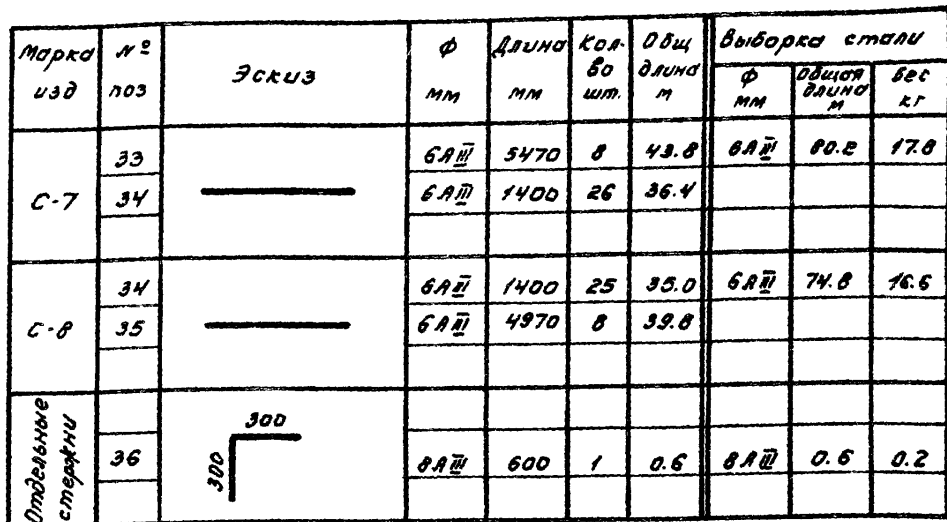 Марка изд № поз Эскиз Ф мм Длина мм Кол-во шт. Общ длина м Выборка стали
Ф мм Общая длина м Вес кг
С-7 33 6АIII 5470 8 43.8 6АIII 80.2 17.8
34 6АIII 1400 26 36.4
С-8 34 6АIII 1400 25 35.0 6АIII 74.8 16.6
35 6АIII 4970 8 39.8
Отдельные стержни 36 300 300 8АIII 600 1 0.6 8АIII 0.6 0.2